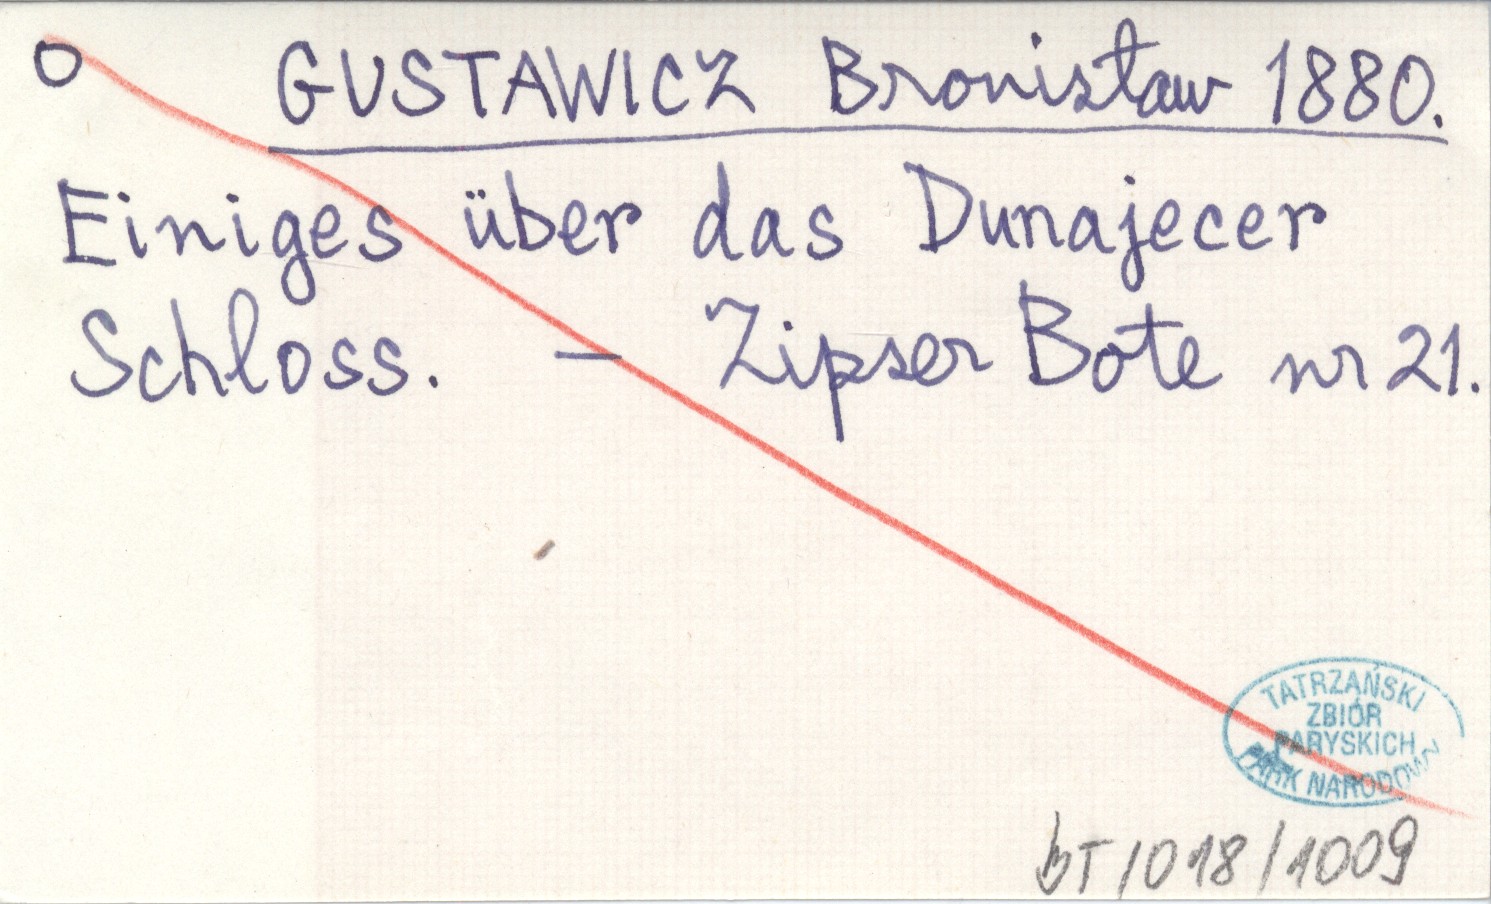 O GUSTAWICZ Bronisław 1880.
Einiges über das Dunajecer
Schloss. — Zipser Bote nr 21.
TATRZAŃSKI
ZBIÓR
PARYSKICH
PARK NARODOWY
BT/018/1009